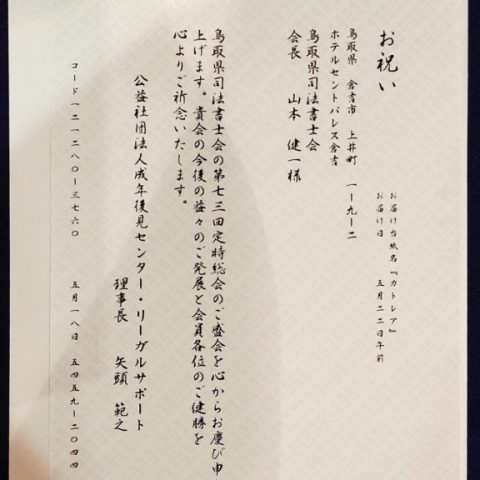 お祝い
お届け台紙名『カトレア』
お届け日　五月二二日午前
鳥取県　倉吉市　上井町　一ー九ー二
ホテルセントパレス倉吉
鳥取県司法書士会
会長　山本　健一様
鳥取県司法書士会の第七三回定時総会のご盛会を心からお慶び申
上げます。貴会の今後の益々のご発展と会員各位のご健勝を
心よりご祈念いたします。
公益社団法人成年後見センター・リーガルサポート
理事長　矢頭　範之
コード一二一二八〇ー三七六〇　五月一八日　五四五九ー二〇四四